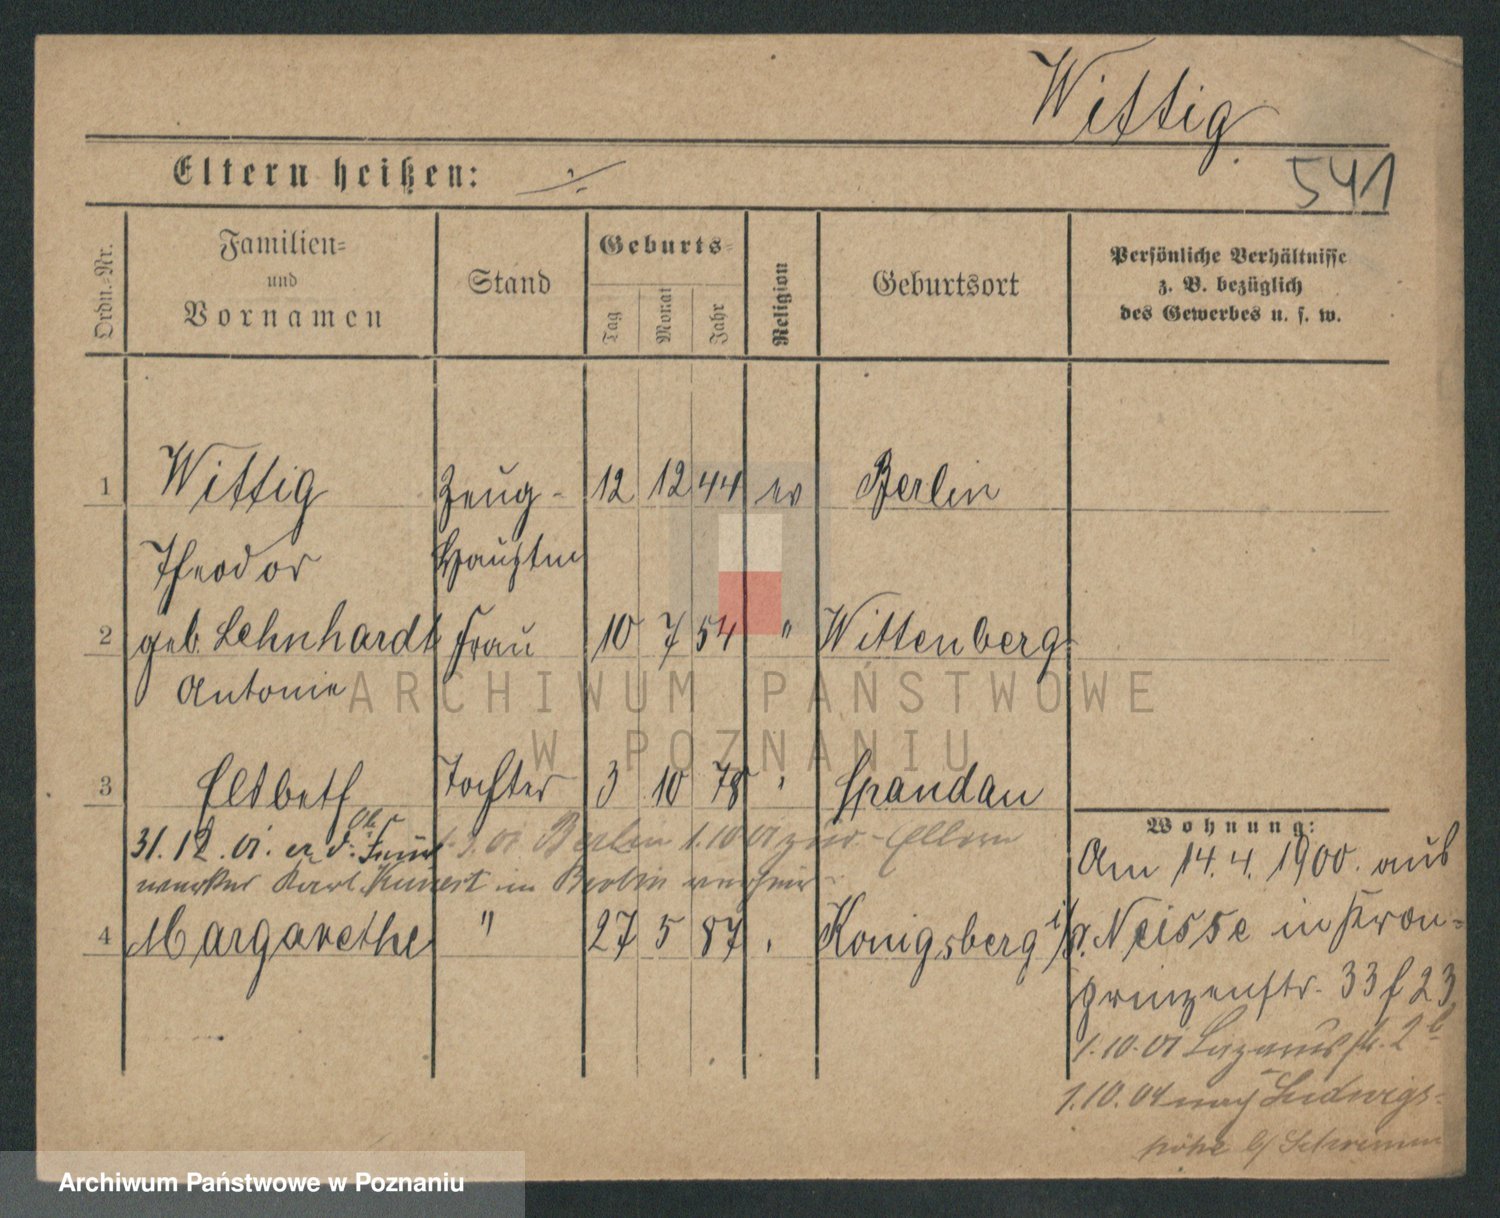 Wittig
541
Eltern heißen: ·/.
Ordn.-Nr.
Familien-
und
Vornamen
Stand
Geburts-
Tag
Monat
Jahr
Religion
Geburtsort
Persönliche Verhältnisse
z. B. bezüglich
des Gewerbes u. s. w.
1 Wittig Zeug- 12 12 44 ev Berlin
Theodor Hauptm
2 geb. Lehnhardt Frau 10 7 54 " Wittenberg
Antonie
3 Elsbeth Tochter 3 10 78 " Spandau
31. 12. 01. 1.9.01 Berlin 1.10.01 zur Eltern
Karl Kunert in Berlin
4 Margarethe " 27 5 87 " Königsberg i/Pr.
Wohnung:
Am 14. 4. 1900. aus
Neisse in Kron-
prinzenstr. 33 f 23
1.10.01 Lazarusstr. 2b
1.10.04 nach Ludwigs-
höhe b/ Schrimm
ARCHIWUM PAŃSTWOWE
W POZNANIU
Archiwum Państwowe w Poznaniu